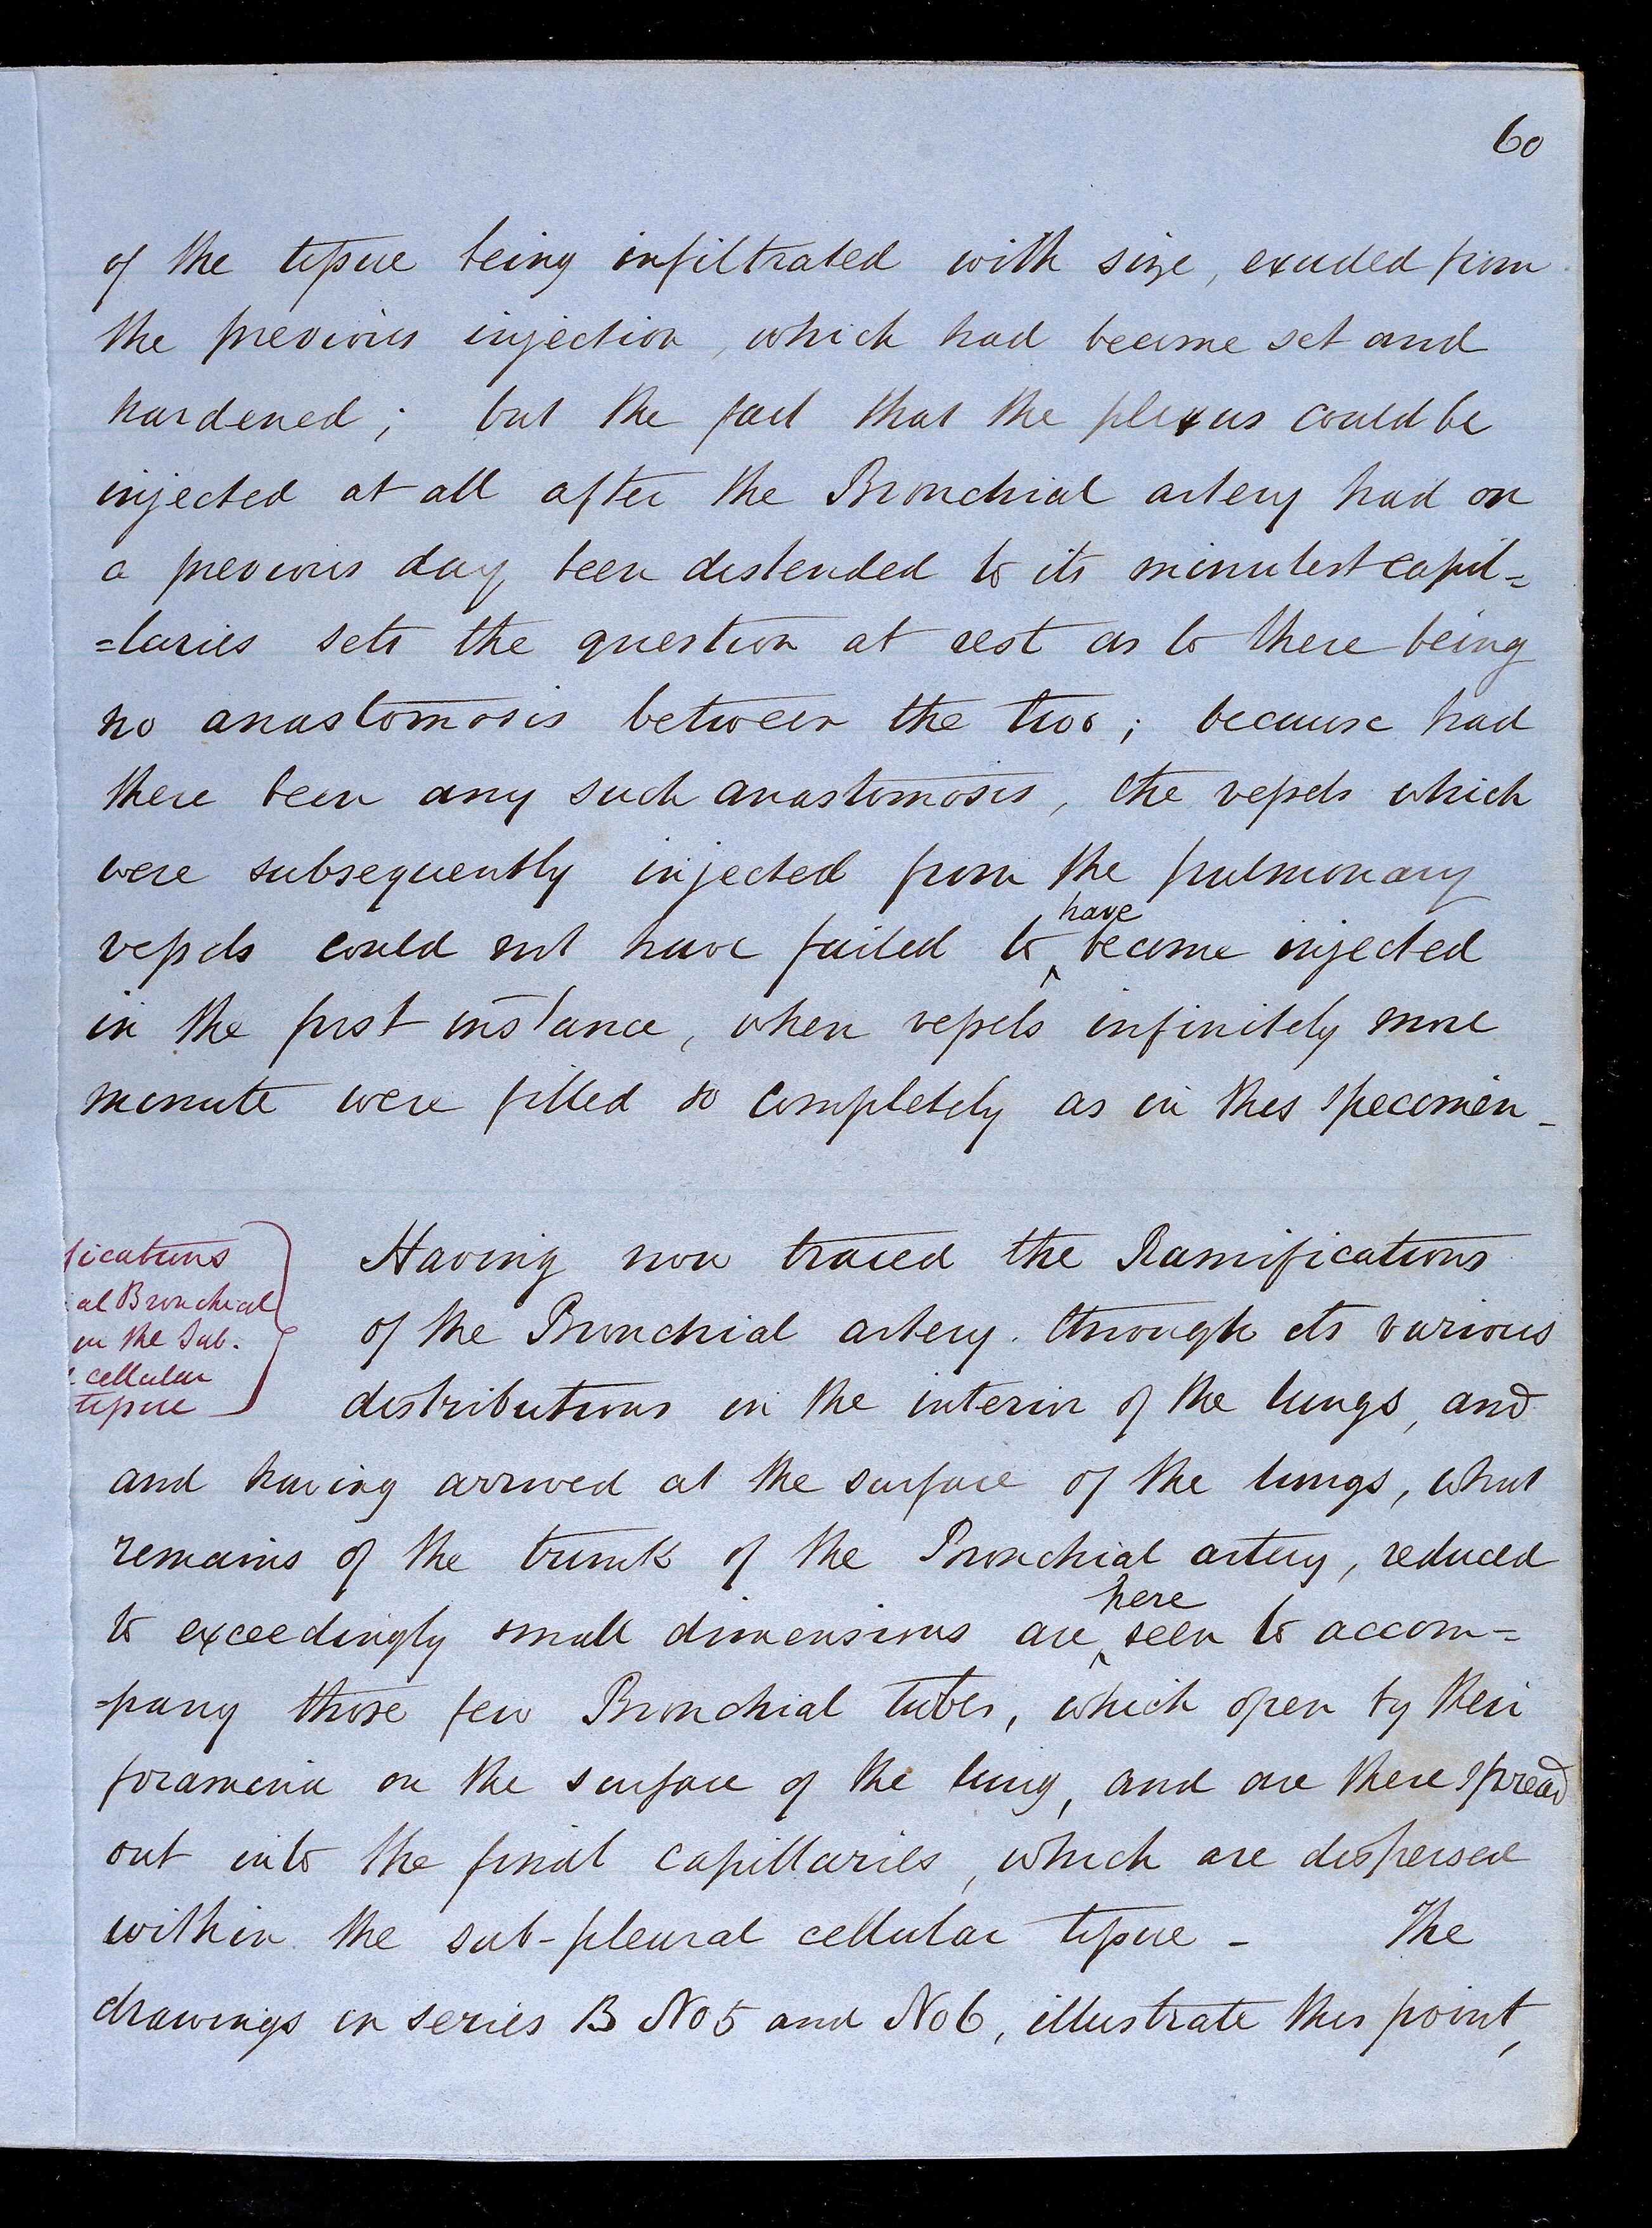 60
of the tissue being infiltrated with size, exuded from
the previous injection, which had become set and
hardened; but the fact that the plexus could be
injected at all after the Bronchial artery had on
a previous day, been distended to its minutest capil=
=laries sets the question at rest as to there being
no anastomosis between the two; because had
there been any such anastomosis, the vessels which
were subsequently injected from the pulmonary
have
vessels could not have failed to ‸ become injected
in the first instance, when vessels infinitely more
minute were filled so completely as in this specimen_
fications
al Bronchial
in the Sub.
cellular
tissue
Having now traced the Ramifications
of the Bronchial artery through its various
distributions in the interior of the lungs, and
and having arrived at the surface of the lungs, what
remains of the trunk of the Bronchial artery, reduced
here
to exceedingly small dimensions are ‸ seen to accom=
=pany those few Bronchial tubes, which open by their
foramina on the surface of the lung, and are there spread
out into the final capillaries, which are dispersed
within the sub-pleural cellular tissue - The
drawings in series B No 5 and No 6, illustrate this point,